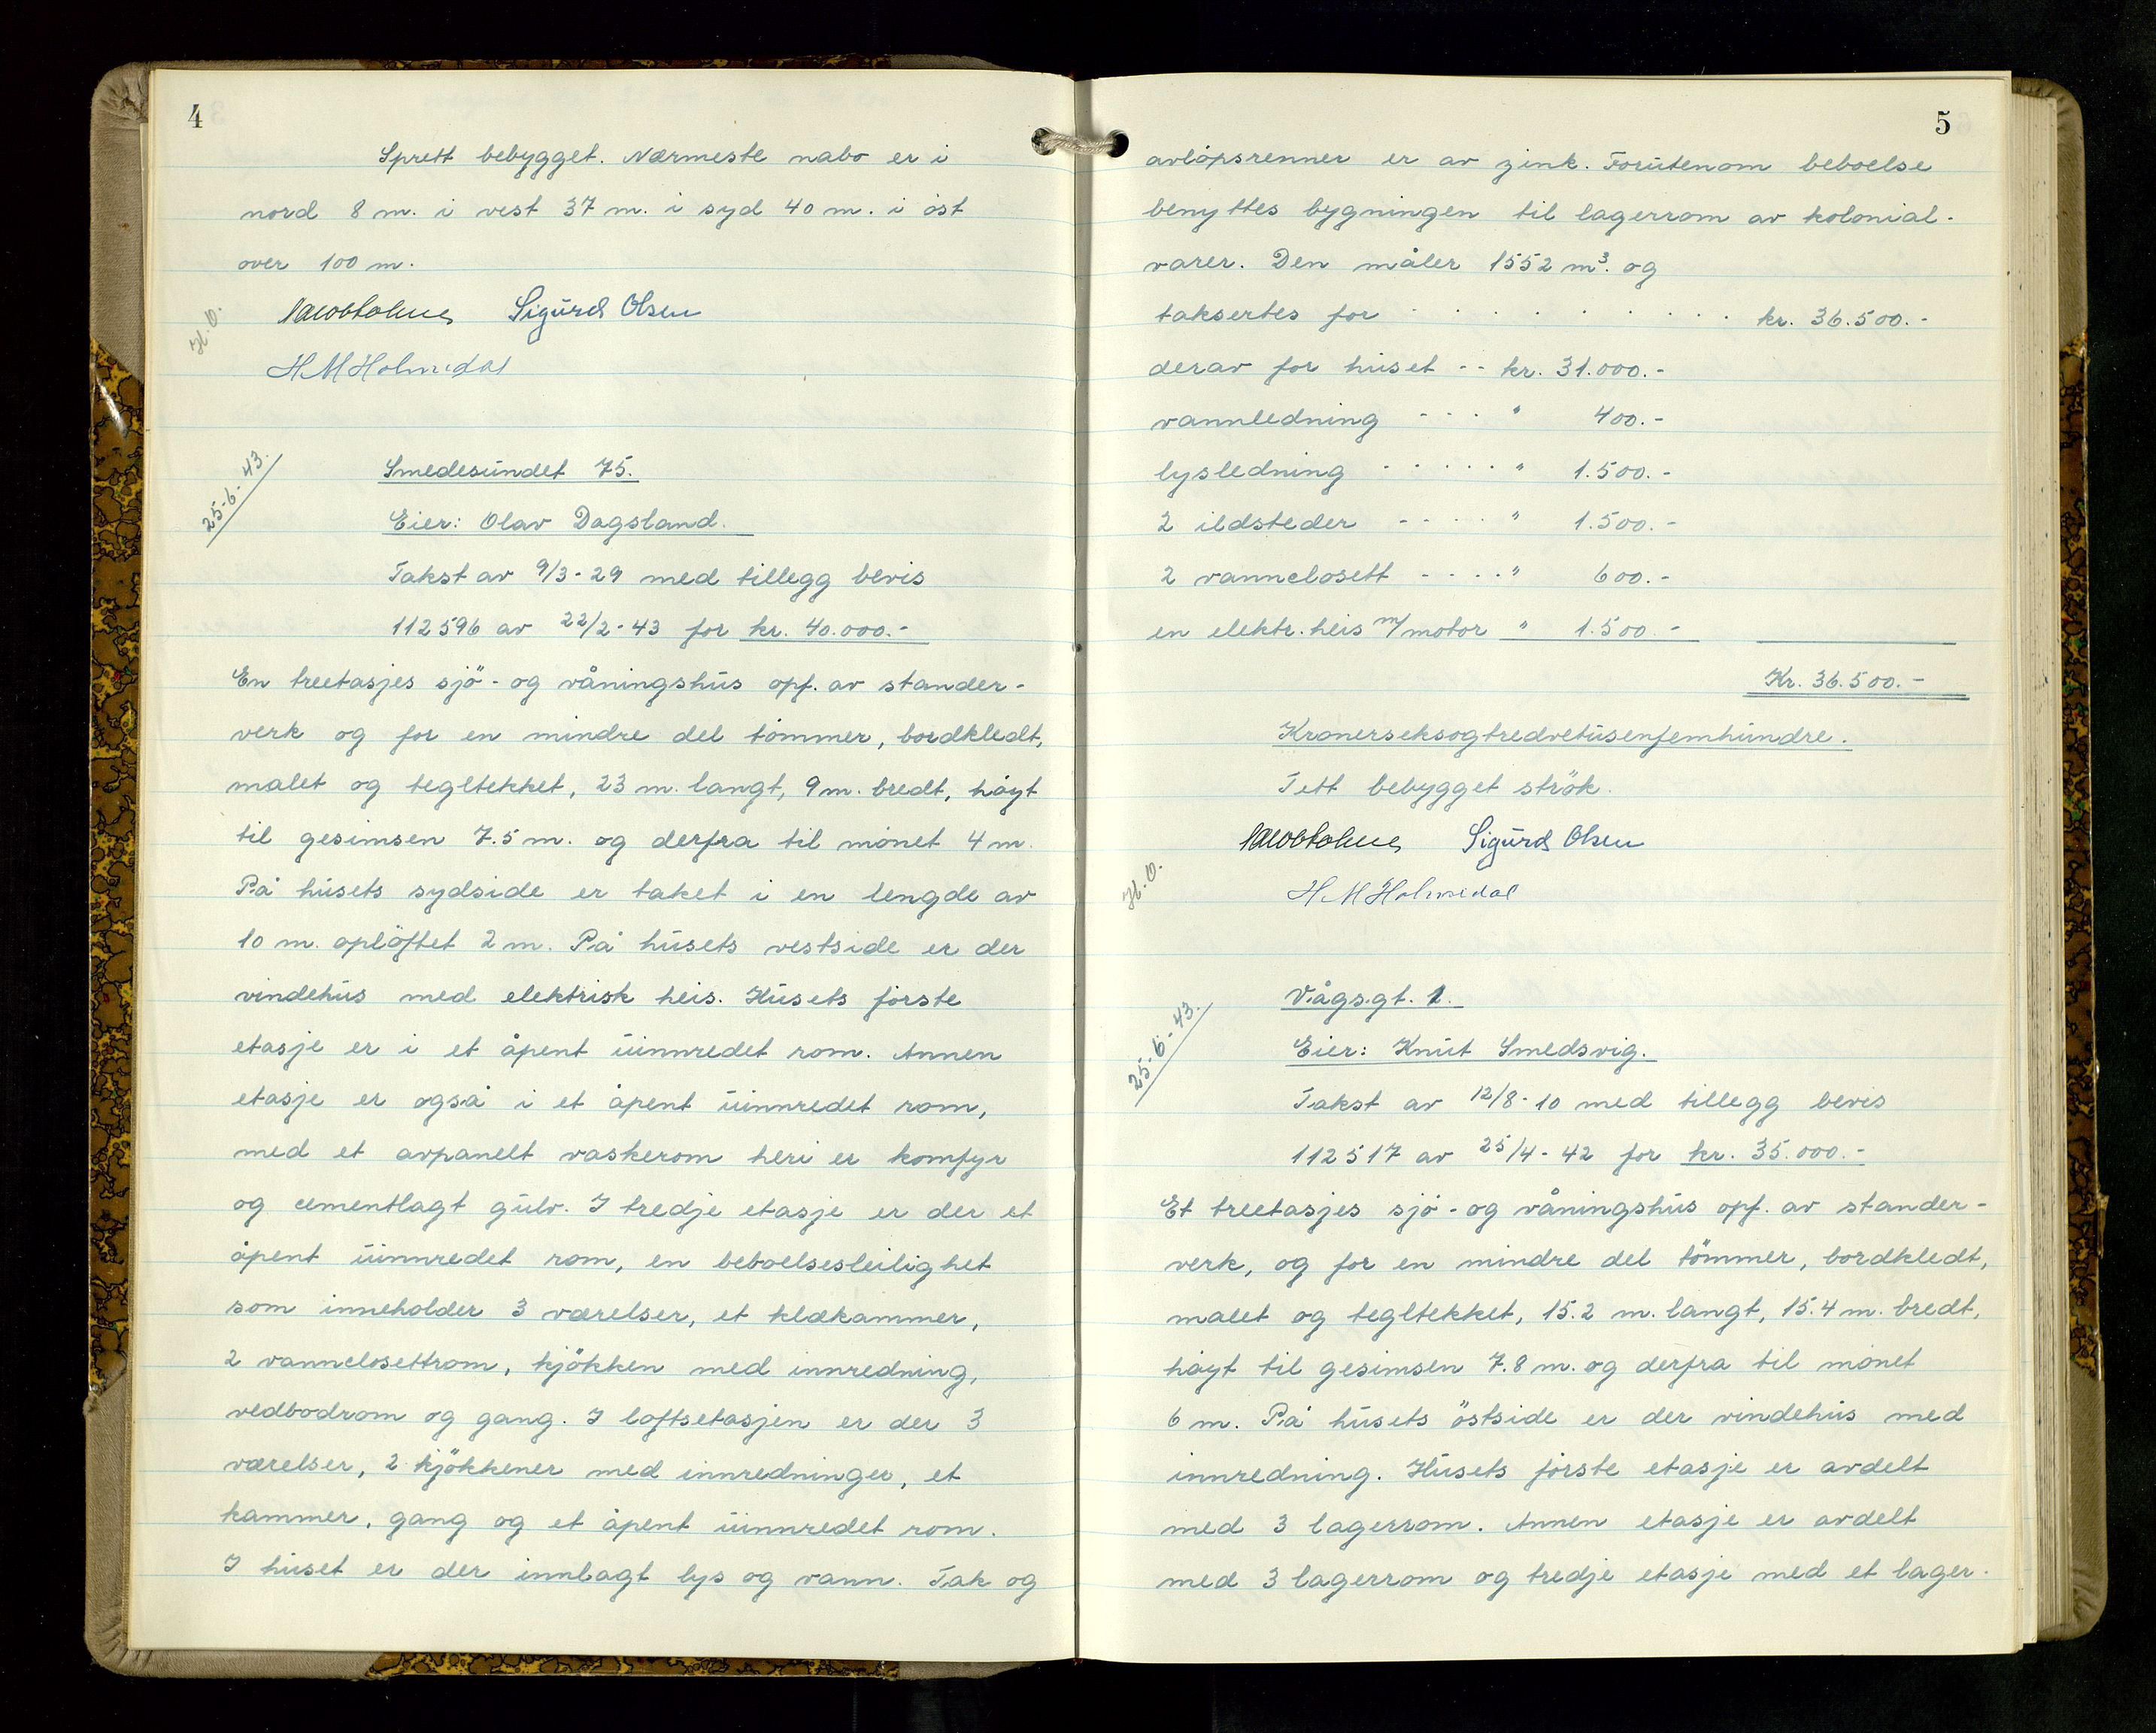 4
Sprett bebygget. Nærmeste nabo er i
nord 8 m. i vest 37 m. i syd 40 m. i øst
over 100 m.
H.O.
Sigurd Olsen
H M Holmedal
25-6-43.
Smedesundet 75.
Eier: Olav Dagsland.
Takst av 9/3-29 med tillegg bevis
112596 av 22/2-43 for kr. 40.000.-
En treetasjes sjö- og våningshus opf. av stander-
verk og for en mindre del tømmer, bordkledt,
malet og tegltekket, 23 m. langt, 9 m. bredt, høyt
til gesimsen 7.5 m. og derfra til mønet 4 m.
På husets sydside er taket i en lengde av
10 m. opløftet 2 m. På husets vestside er der
vindehus med elektrisk heis. Husets første
etasje er i et åpent uinnredet rom. Annen
etasje er også i et åpent uinnredet rom,
med et avpanelt vaskerom heri er komfyr
og cementlagt gulv. I tredje etasje er der et
åpent uinnredet rom, en beboelsesleilighet
som inneholder 3 værelser, et klækammer,
2 vannclosettrom, kjökken med innredning,
vedbodrom og gang. I loftsetasjen er der 3
værelser, 2 kjökkener med innredninger, et
kammer, gang og et åpent uinnredet rom.
I huset er der innlagt lys og vann. Tak og
5
avløpsrenner er av zink. Forutenom beboelse
benyttes bygningen til lagerrom av kolonial-
varer. Den måler 1552 m³. og
taksertes for . . . . . . . . . . kr. 36.500.-
derav for huset -- kr. 31.000.-
vannledning - - - " 400.-
lysledning - - - - - " 1.500.-
2 ildsteder - - - - " 1.500.-
2 vannclosett - - - - " 600.-
en elektr. heis m/motor " 1.500.-
Kr. 36.500.-
Kronerseksogtredvetusenfemhundre.
Tett bebygget strök.
H.O.
Sigurd Olsen
H M Holmedal
25-6-43.
Vågsgt. 1.
Eier: Knut Smedsvig.
Takst av 12/8-10 med tillegg bevis
112517 av 25/4-42 for kr. 35.000.-
Et treetasjes sjø- og våningshus opf. av stander-
verk, og for en mindre del tömmer, bordkledt,
malet og tegltekket, 15.2 m. langt, 15.4 m. bredt,
høyt til gesimsen 7.8 m. og derfra til mønet
6 m. På husets östside er der vindehus med
innredning. Husets første etasje er avdelt
med 3 lagerrom. Annen etasje er avdelt
med 3 lagerrom og tredje etasje med et lager-